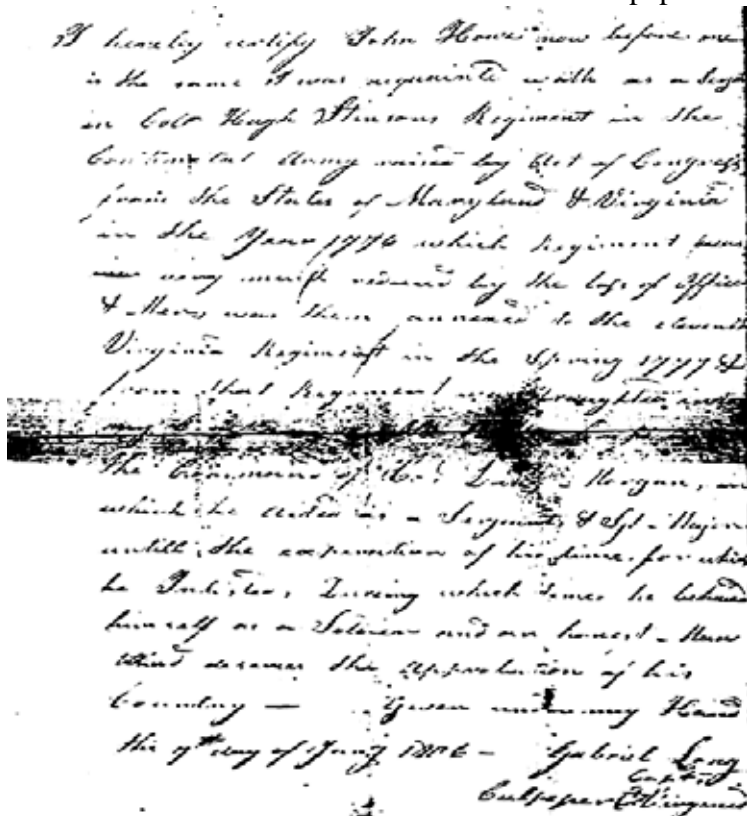 I hereby certify John Howe now before me
is the same I was acquainted with as a Serjt
in Colo Hugh Stinsons Regiment in the
Continental Army raised by Act of Congress
from the States of Maryland & Virginia
in the Year 1776 which Regiment
very much reduced by the loss of Officers
& Men was then annexed to the eleventh
Virginia Regiment in the Spring 1777 &
from that Regiment was
the Command of Morgan, in
which he acted as a Serjeant & Sjt. Major
untill the experation of his time for which
he Inlisted, During which time he behaved
himself as a Soldier and an honest Man
and deserves the approbation of his
Country — Given under my Hand
the 9th day of 1806 — Gabriel Long
Capt.
Culpeper Virginia